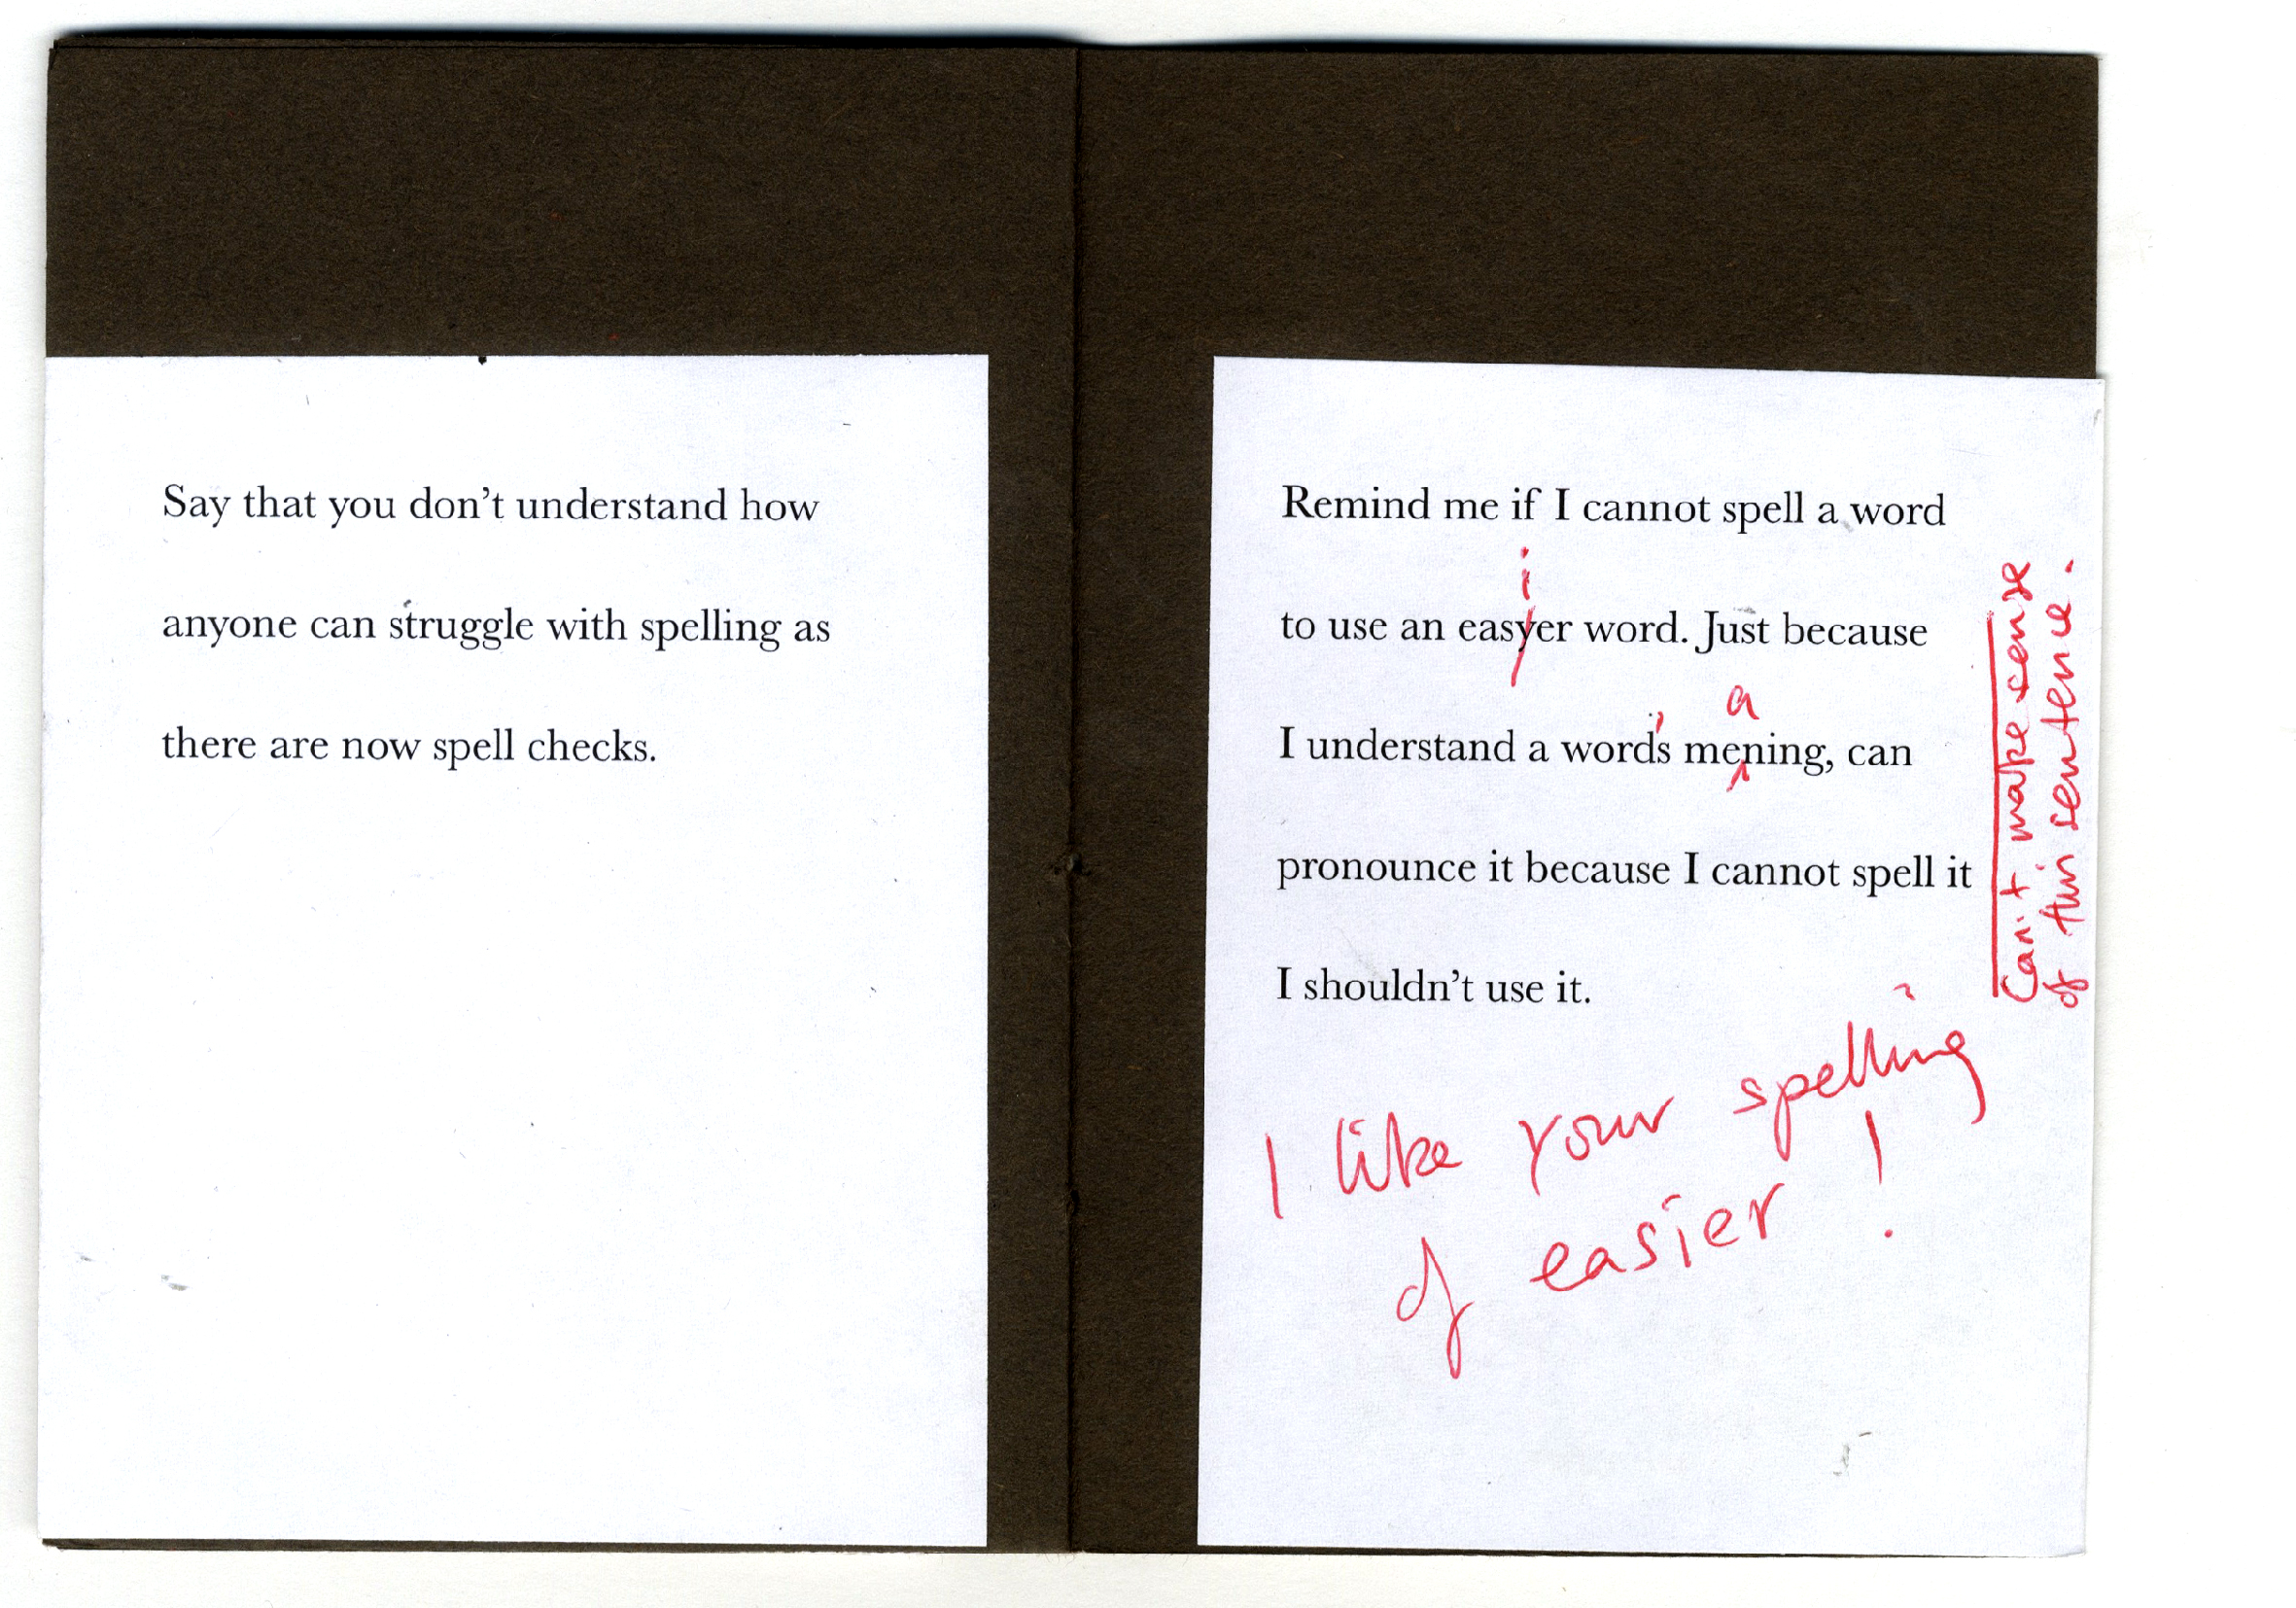 Say that you don't understand how
anyone can struggle with spelling as
there are now spell checks.
Remind me if I cannot spell a word
i
to use an easyer word. Just because
a
I understand a word's mening, can
pronounce it because I cannot spell it
I shouldn't use it.
Can't make sense
of this sentence.
I like your spelling
of easier!